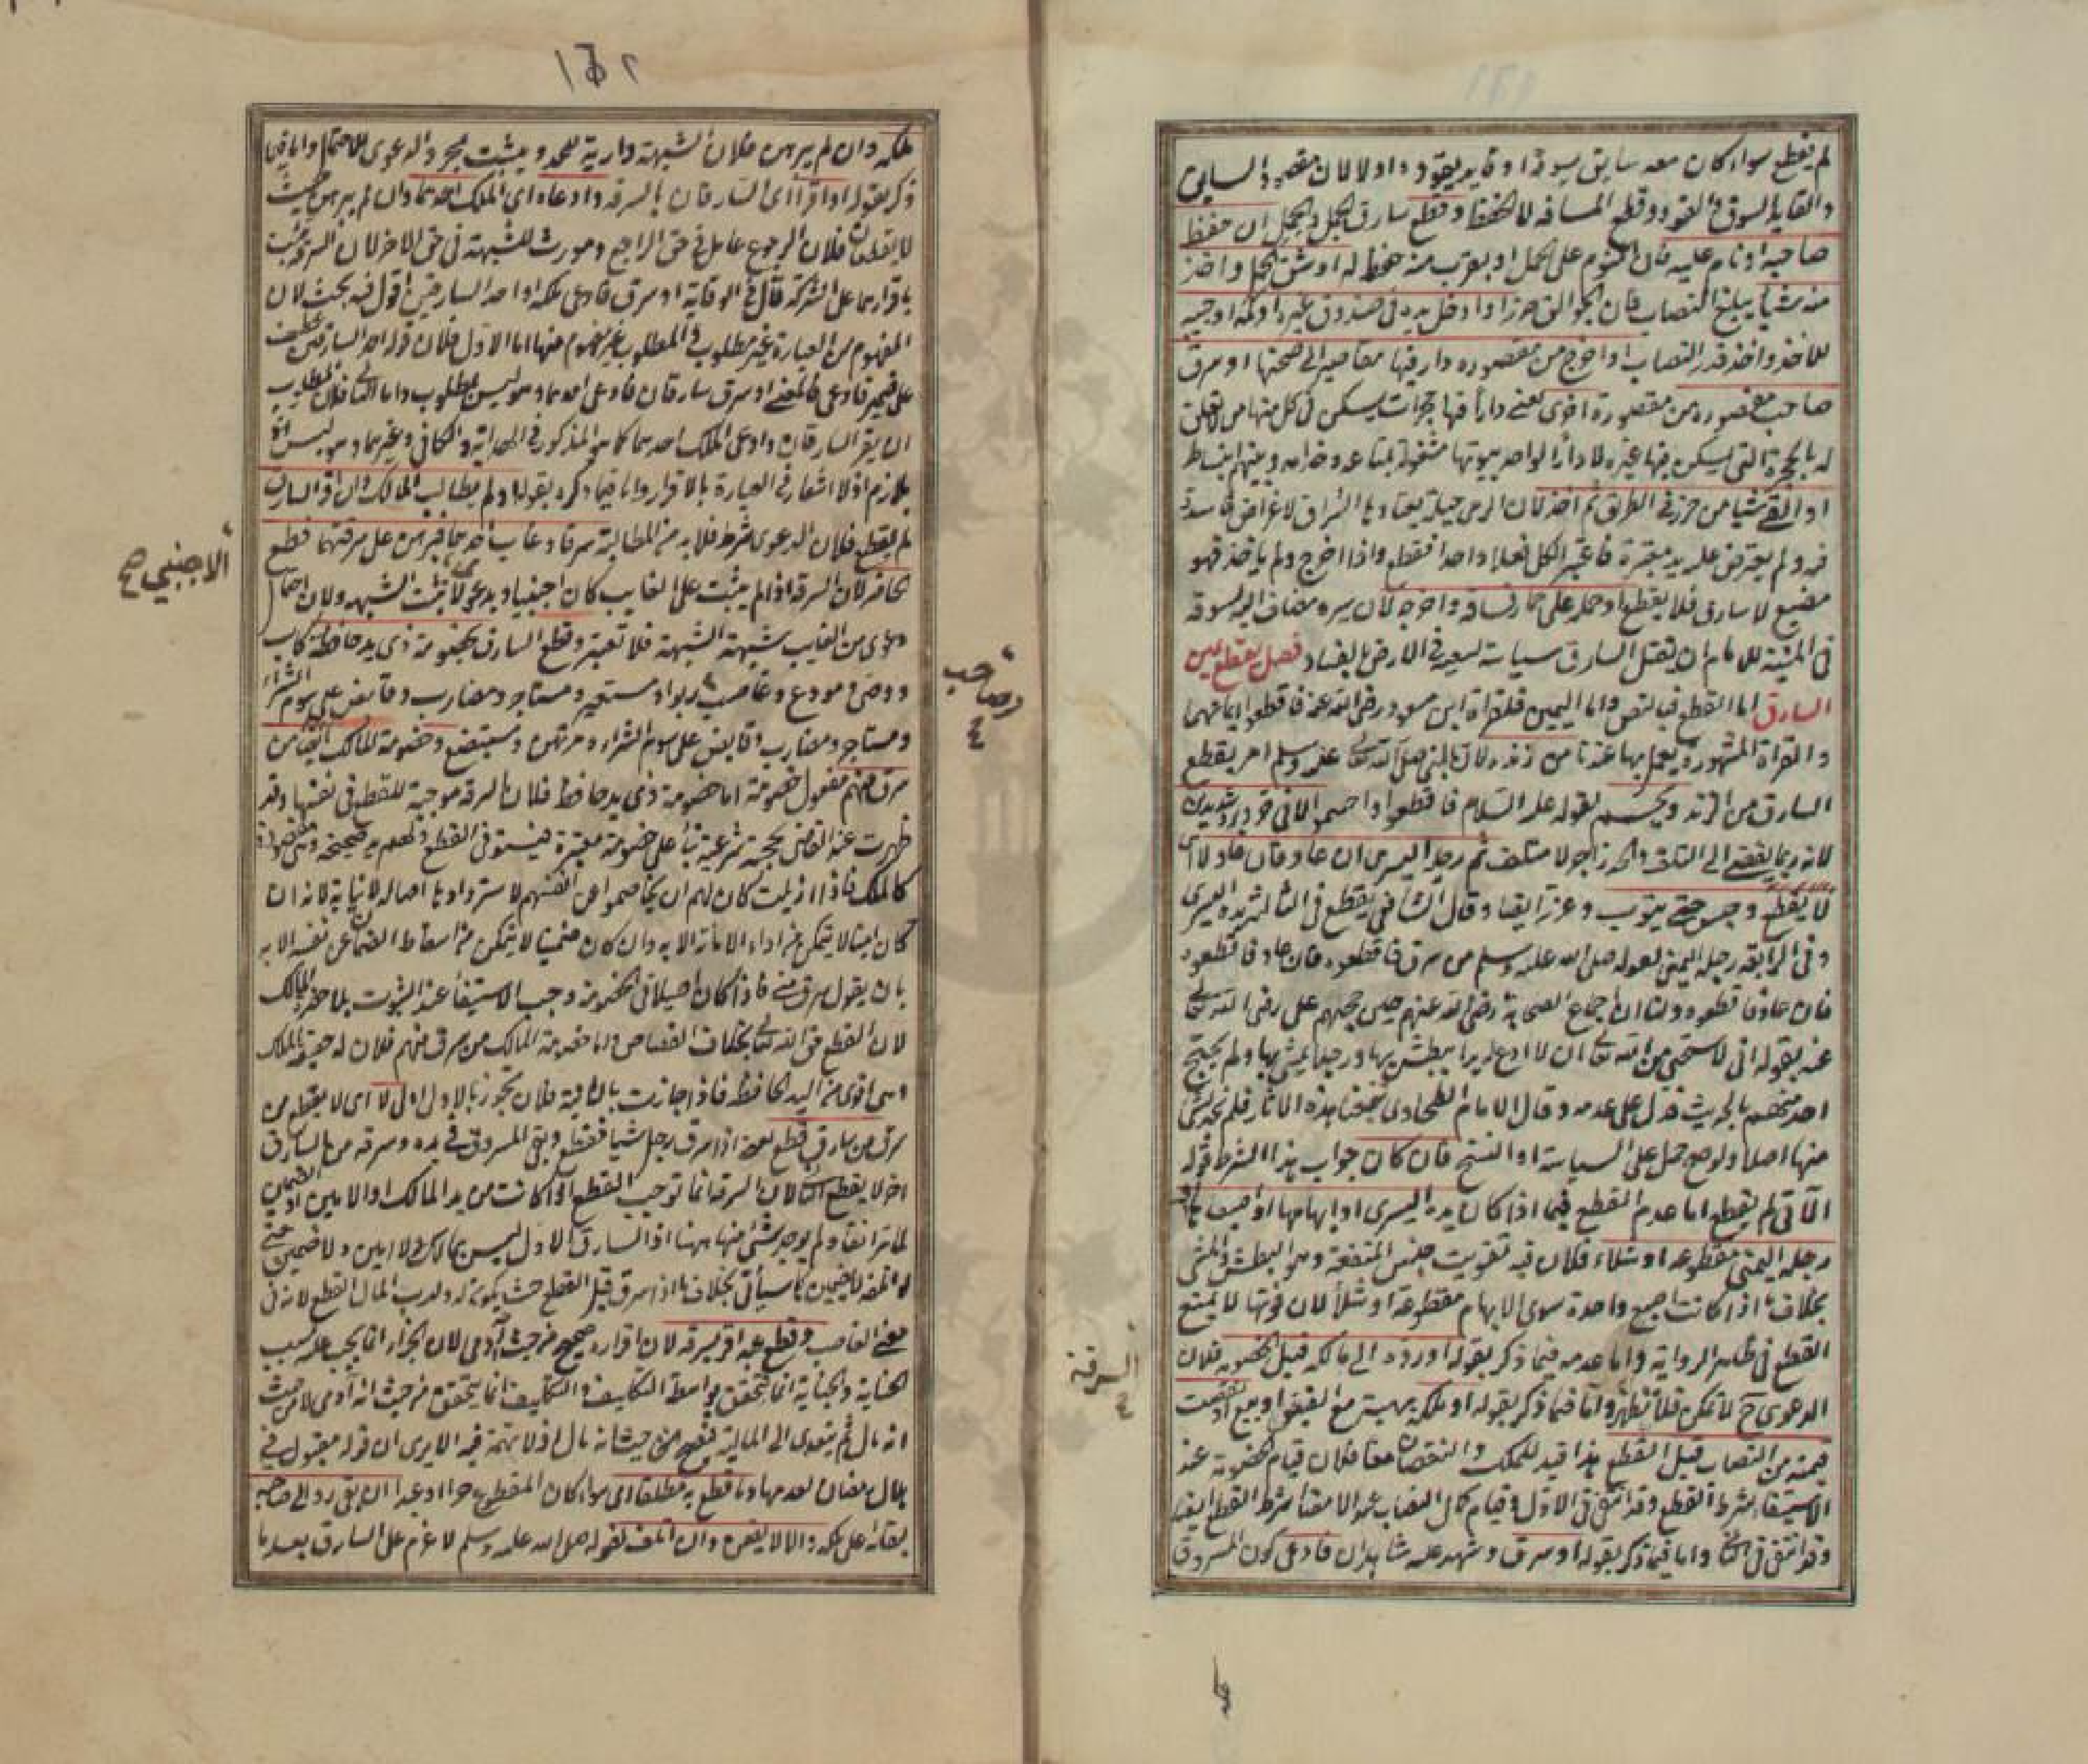 لم يقطع سواء كان معه سايق يسوق او قايد يقود او لا لان مقصود السايق
والقايد السوق والقود وقطع المسافة لا الحفظ وقطع سارق الحمل والجمل ان حفظ
صاحبه او نام عليه فان النوم على الحمل او بقرب منه حفظ له او شق الحمل واخذ
منه شيأ يبلغ النصاب فان الجوالق حرز او ادخل يده في صندوق غيره او كمه او جيبه
للاخذ واخذ قدر النصاب او اخرج من مقصورة دار فيها مقاصير الى صحنها او سرق
صاحب مقصورة من مقصورة اخرى يعني دارا فيها حجرات يسكن في كل منها من لا تعلق
له بالحجرة التي يسكن فيها غيره لا دارا لواحد بيوتها مشغولة بمتاعه وخدامه وبينهم انبساط
او القى شيأ من حرز في الطريق ثم اخذ لان الرمي حيلة يعتادها السراق لاغراض فاسدة
فيه ولم يعترض عليه يد معتبرة فاعتبر الكل فعلا واحدا فقطع واذا اخرج ولم ياخذ فهو
مضيع لا سارق فلا يقطع او حمله على حمار فساقه واخرجه لان سيره مضاف اليه لسوقه
في المنية للامام ان يقتل السارق سياسة لسعيه في الارض بالفساد فصل يقطع يمين
السارق اما القطع فبالنص واما اليمين فلقراءة ابن مسعود رضي الله عنه فاقطعوا ايمانهما
والقراة المشهورة يعمل بها عندنا من زنده لان النبي صلى الله تعالى عليه وسلم امر بقطع
السارق من الزند ويحسم لقوله عليه السلام فاقطعوا واحسموا الا في حر وبرد شديدين
لانه ربما يفضي الى التلف والحد زاجر لا متلف ثم رجله اليسرى ان عاد فان عاد لا اي
لا يقطع وحبس حتى يتوب وعزر ايضا وقال الشافعي يقطع في الثالثة يده اليسرى
وفي الرابعة رجله اليمنى لقوله صلى الله عليه وسلم من سرق فاقطعوه فان عاد فاقطعوه
فان عاد فاقطعوه ولنا اجماع الصحابة رضي الله عنهم حين حجهم علي رضي الله تعالى
عنه بقوله اني لاستحيي من الله تعالى ان لا ادع له يدا يبطش بها ورجلا يمشي بها ولم يحتج
احد منهم بالحديث فدل على عدمه وقال الامام الطحاوي تتبعنا هذه الاثار فلم نجد لشئ
منها اصلا ولو صح حمل على السياسة او النسخ فان كان جواب هذا الشرط قوله
الآتي لم يقطع اما عدم القطع فيما اذا كان يده اليسرى او ابهامها او اصبعاها او
رجله اليمنى مقطوعة او شلاء فلان فيه تفويت جنس المنفعة وهو البطش والمشي
بخلاف ما اذا كانت اصبع واحدة سوى الابهام مقطوعة او شلاء لان فوتها لا يمنع
القطع في ظاهر الرواية واما عدمه فيما ذكر بقوله او رده الى مالكه قبل الخصومة فلان
الدعوى ح لا تمكن فلا تظهر واما فيما ذكر بقوله او ملكه بهبة مع القبض او بيع او نقصت
قيمته من النصاب قبل القطع هذا قيد للملك والنقصان معا فلان قيام الخصومة عند
الاستيفاء شرط القطع وقد انتفى في الاول وقيام كمال النصاب عند الامضاء شرط القطع ايضا
وقد انتفى في الثاني واما فيما ذكر بقوله او سرق وشهد عليه شاهدان فادعى كون المسروق
السرقة
١٦٢
ملكه وان لم يبرهن فلان الشبهة دارئة للحد ويثبت بمجرد الدعوى للاحتمال واما فيما
ذكر بقوله او اقرا اي السارقان بالسرقة وادعاه اي الملك احدهما وان لم يبرهن حيث
لا يقطعان فلان الرجوع عامل في حق الراجع ومورث للشبهة في حق الاخر لان السرقة تثبت
باقرارهما على الشركة قال في الوقاية او سرق فادعى ملكه او احد السارقين اقول فيه بحث لان
المفهوم من العبارة غير مطلوب والمطلوب غير مفهوم منها اما الاول فلان قوله احد السارقين عطف
على ضمير فادعى فالمعنى او سرق سارقان فادعى احدهما وهو ليس بمطلوب واما الثاني فلان المطلوب
ان يقر السارقان وادعى الملك احدهما كما هو المذكور في الهداية والكافي وغيرهما وهو ليس
بلازم اذ لا اشعار في العبارة بالاقرار واما فيما ذكره بقوله او لم يطالب المالك وان اقر السارق
لم يقطع فلان الدعوى شرط فلا بد من المطالبة سرقا وغاب احدهما فبرهن على سرقتهما قطع
الحاضر لان السرقة اذا لم يثبت على الغايب كان اجنبيا وبدعوى لا تثبت الشبهة ولان احتمال
دعوى من الغايب شبهة الشبهة فلا تعتبر وقطع السارق بخصومة ذي يد حافظة كاب
ووصي ومودع وغاصب ربوا ومستعير ومستاجر ومضارب وقابض على سوم الشراء
ومستاجر ومضارب وقابض على سوم الشراء ومرتهن ومستبضع وخصومة المالك ايضا من
سرق منهم مفعول خصومة اما خصومة ذي يد حافظ فلان السرقة موجبة للقطع في نفسها وقد
ظهرت عند القاضي بحجة شرعية بناء على خصومة معتبرة فيستوفي القطع ولهم يد صحيحة وهي مقصودة
كالملك فاذا ازيلت كان لهم ان يخاصموا عن انفسهم لاستردادها اصالة لا نيابة لانه ان
كان امينا لا يتمكن من اداء الامانة الا به وان كان ضمينا لا يتمكن من اسقاط الضمان عن نفسه الا به
بان يقول سرق مني فاذا كان اصيلا في الخصومة وجب الاستيفاء عند الثبوت بلا حضرة المالك
لان القطع حق الله تعالى بخلاف القصاص واما خصومة المالك من سرق منهم فلان له حقيقة الملك
وهي اقوى من اليد الحافظة فاذا جازت بالثانية فلان تجوز بالاولى اولى لا اي لا يقطع من
سرق من سارق قطع يعني اذا سرق رجل شيأ فقطع وبقي المسروق في يده وسرقه من السارق
اخر لا يقطع الثاني لان السرقة انما توجب القطع اذا كانت من يد المالك او الامين او الضمين
لما مر انفا ولم يوجد شئ منها ههنا اذ السارق الاول ليس بمالك ولا امين ولا ضمين حتى
لو اتلفه لا يضمن كما سيأتي بخلاف ما اذا سرق قبل القطع حيث يكون له ولرب المال القطع لانه في
معنى الغاصب وقطع عبد اقر بسرقة لان اقراره صحيح من حيث آدمي لان الجزاء انما يجب عليه بسبب
الجناية والجناية انما تتحقق بواسطة التكليف والتكليف انما يتحقق من حيث انه آدمي لا من حيث
انه مال ثم يتعدى الى المالية فيصح من حيث انه مال اذ لا تهمة فيه الا يرى ان قوله مقبول في
هلال رمضان لعدمها وما قطع به مطلقا اي سواء كان المقطوع حرا او عبدا ان بقي رد الى صاحبه
لبقائه على ملكه والا لا يضمن وان اتلف لقوله صلى الله عليه وسلم لا غرم على السارق بعد ما
الاجنبي صح
وصاحب